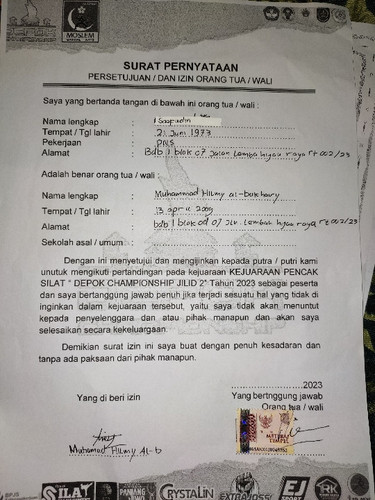 MOSLEM
SURAT PERNYATAAN
PERSETUJUAN / DAN IZIN ORANG TUA / WALI
Saya yang bertanda tangan di bawah ini orang tua / wali :
Nama lengkap : Saapudin
Tempat / Tgl lahir : 21 Juni 1977
Pekerjaan : PNS
Alamat : Bdb 1 blok 07 Jalan Lembah hijau raya rt 002/23
Adalah benar orang tua / wali :
Nama lengkap : Muhammad Hilmy al-bukhory
Tempat / Tgl lahir : 13 april 2009
Alamat : bdb 1 blok od 07 Jln Lembah hijau raya rt 002/23
Sekolah asal / umum :
Dengan ini menyetujui dan mengijinkan kepada putra / putri kami
unutuk mengikuti pertandingan pada kejuaraan KEJUARAAN PENCAK
SILAT " DEPOK CHAMPIONSHIP JILID 2" Tahun 2023 sebagai peserta
dan saya bertanggung jawab penuh jika terjadi sesuatu hal yang tidak di
inginkan dalam kejuaraan tersebut, yaitu saya tidak akan menuntut
kepada penyelenggara dan atau pihak manapun dan akan saya
selesaikan secara kekeluargaan.
Demikian surat izin ini saya buat dengan penuh kesadaran dan
tanpa ada paksaan dari pihak manapun.
.......................2023
Yang di beri izin
Yang bertnggung jawab
Orang tua / wali
METERAI
TEMPEL
Muhamad Hilmy Al-b
BPJS
SILAT
CRYSTALIN
EXTRAJOSS
EJ
SPORT
RK